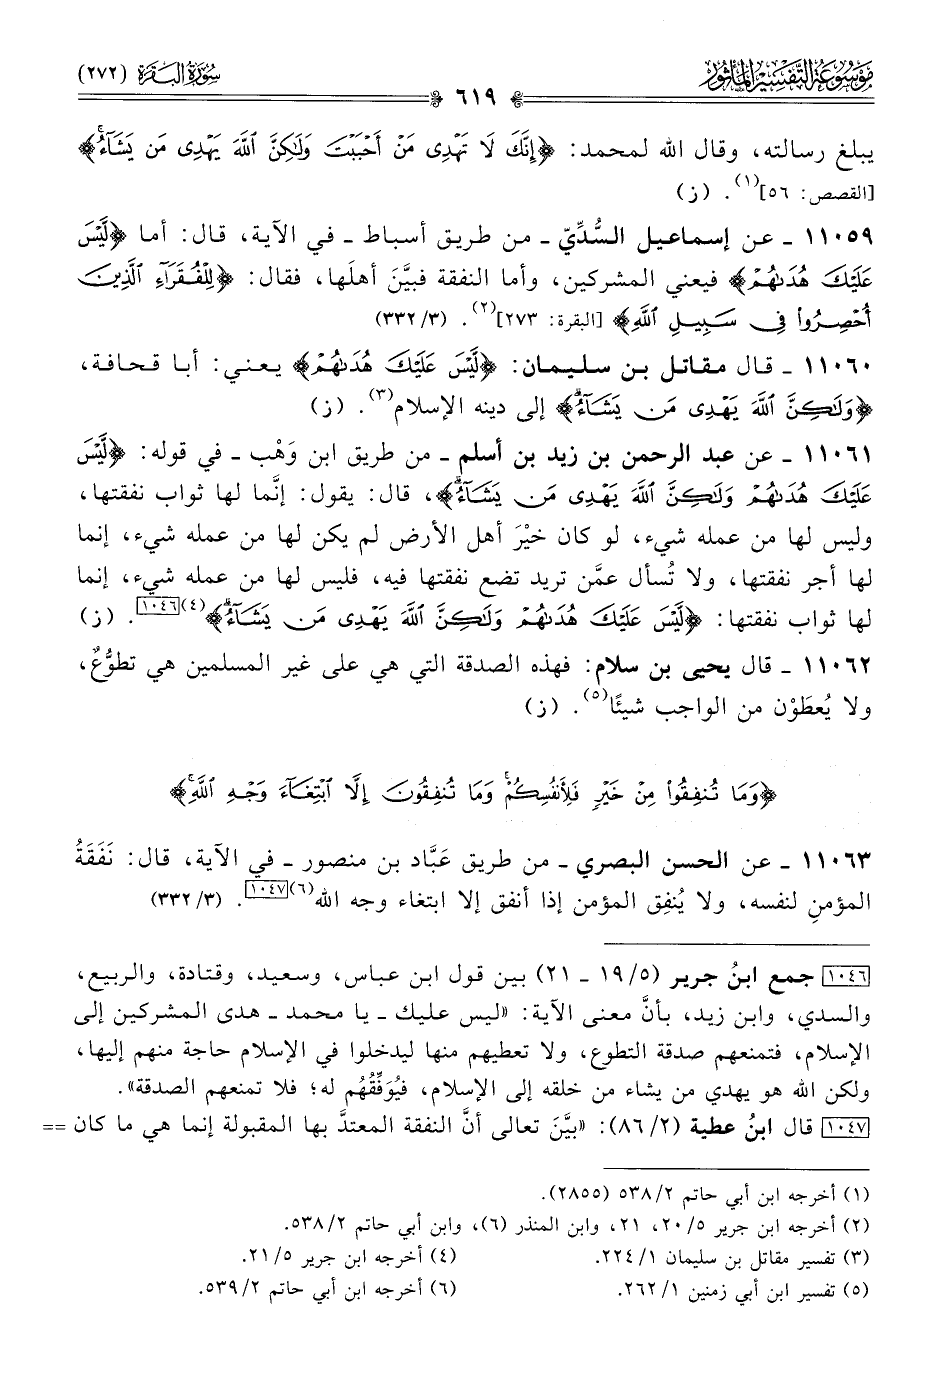 موسوعة التفسير المأثور
سورة البقرة (٢٧٢)
٦١٩
يبلغ رسالته، وقال الله لمحمد: ﴿إِنَّكَ لَا تَهْدِى مَنْ أَحْبَبْتَ وَلَٰكِنَّ ٱللَّهَ يَهْدِى مَن يَشَآءُۚ﴾
[القصص: ٥٦](١). (ز)
١١٠٥٩ ـ عن إسماعيل السُّدِّيّ ـ من طريق أسباط ـ في الآية، قال: أما ﴿لَّيْسَ
عَلَيْكَ هُدَىٰهُمْ﴾ فيعني المشركين، وأما النفقة فبيَّنَ أهلَها، فقال: ﴿لِلْفُقَرَآءِ ٱلَّذِينَ
أُحْصِرُوا۟ فِى سَبِيلِ ٱللَّهِ﴾ [البقرة: ٢٧٣](٢). (٣٣٢/٣)
١١٠٦٠ ـ قال مقاتل بن سليمان: ﴿لَّيْسَ عَلَيْكَ هُدَىٰهُمْ﴾ يعني: أبا قحافة،
﴿وَلَٰكِنَّ ٱللَّهَ يَهْدِى مَن يَشَآءُۗ﴾ إلى دينه الإسلام(٣). (ز)
١١٠٦١ ـ عن عبد الرحمن بن زيد بن أسلم ـ من طريق ابن وَهْب ـ في قوله: ﴿لَّيْسَ
عَلَيْكَ هُدَىٰهُمْ وَلَٰكِنَّ ٱللَّهَ يَهْدِى مَن يَشَآءُۗ﴾، قال: يقول: إنَّما لها ثواب نفقتها،
وليس لها من عمله شيء، لو كان خيْرَ أهل الأرض لم يكن لها من عمله شيء، إنما
لها أجر نفقتها، ولا تُسأل عمَّن تريد تضع نفقتها فيه، فليس لها من عمله شيء، إنما
لها ثواب نفقتها: ﴿لَّيْسَ عَلَيْكَ هُدَىٰهُمْ وَلَٰكِنَّ ٱللَّهَ يَهْدِى مَن يَشَآءُۗ﴾(٤)[١٠٤٦]. (ز)
١١٠٦٢ ـ قال يحيى بن سلام: فهذه الصدقة التي هي على غير المسلمين هي تطوُّعٌ،
ولا يُعطَوْن من الواجب شيئًا(٥). (ز)
﴿وَمَا تُنفِقُوا۟ مِنْ خَيْرٍ فَلِأَنفُسِكُمْۚ وَمَا تُنفِقُونَ إِلَّا ٱبْتِغَآءَ وَجْهِ ٱللَّهِۚ﴾
١١٠٦٣ ـ عن الحسن البصري ـ من طريق عَبَّاد بن منصور ـ في الآية، قال: نَفَقَةُ
المؤمنِ لنفسه، ولا يُنفِق المؤمن إذا أنفق إلا ابتغاء وجه الله(٦)[١٠٤٧]. (٣٣٢/٣)
[١٠٤٦] جمع ابنُ جرير (١٩/٥ ـ ٢١) بين قول ابن عباس، وسعيد، وقتادة، والربيع،
والسدي، وابن زيد، بأنَّ معنى الآية: «ليس عليك ـ يا محمد ـ هدى المشركين إلى
الإسلام، فتمنعهم صدقة التطوع، ولا تعطيهم منها ليدخلوا في الإسلام حاجة منهم إليها،
ولكن الله هو يهدي من يشاء من خلقه إلى الإسلام، فيُوَفِّقُهُم له؛ فلا تمنعهم الصدقة».
[١٠٤٧] قال ابنُ عطية (٨٦/٢): «بيَّنَ تعالى أنَّ النفقة المعتدَّ بها المقبولة إنما هي ما كان ==
(١) أخرجه ابن أبي حاتم ٥٣٨/٢ (٢٨٥٥).
(٢) أخرجه ابن جرير ٢٠/٥، ٢١، وابن المنذر (٦)، وابن أبي حاتم ٥٣٨/٢.
(٣) تفسير مقاتل بن سليمان ٢٢٤/١.
(٤) أخرجه ابن جرير ٢١/٥.
(٥) تفسير ابن أبي زمنين ٢٦٢/١.
(٦) أخرجه ابن أبي حاتم ٥٣٩/٢.